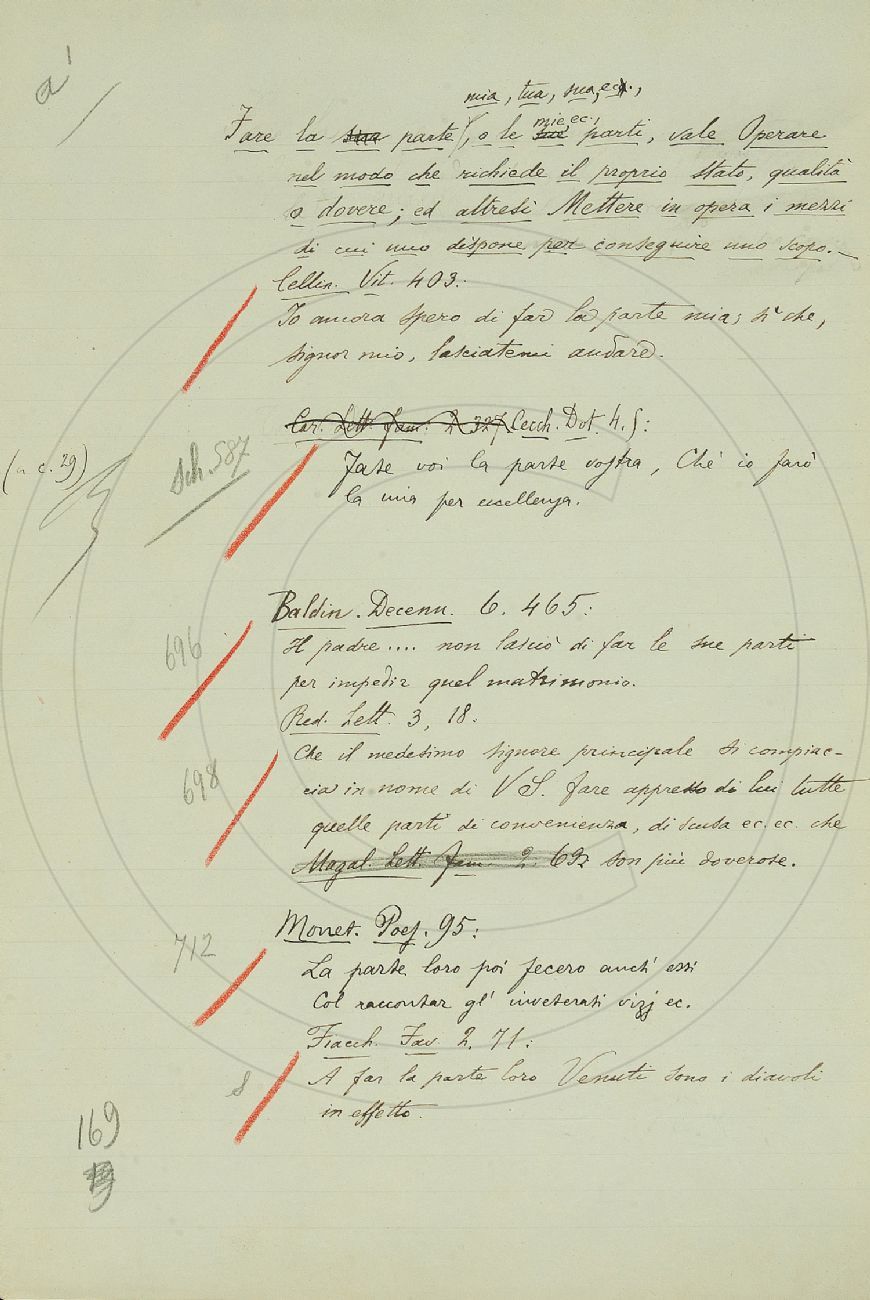 a'
mia, tua, sua, ec.,
Fare la sua parte, o le sue mie ec. parti, vale Operare
nel modo che richiede il proprio stato, qualità
o dovere; ed altresì Mettere in opera i mezzi
di cui uno dispone per conseguire uno scopo.—
Cellin. Vit. 403:
Io ancora spero di far la parte mia; sì che,
signor mio, lasciatemi andare.
Car. Lett. fam. 2. 327. Cecch. Dot. 4. 5:
(a c. 29)
Sch. 587
Fate voi la parte vostra, Ch' io farò
la mia per eccellenza.
Baldin. Decenn. 6. 465:
696
Il padre.... non lasciò di far le sue parti
per impedir quel matrimonio.
Red. Lett. 3, 18.
Che il medesimo signore principale si compiac-
698
cia in nome di V S. fare appresso di lui tutte
quelle parti di convenienza, di scusa ec. ec. che
Magal. Lett. fam. 2. 692 son più doverose.
Monet. Poes. 95:
712
La parte loro poi fecero anch' essi
Col raccontar gl' inveterati vizj ec.
Fiacch. Fav. 2. 71:
8
A far la parte loro Venuti sono i diavoli
in effetto.
169